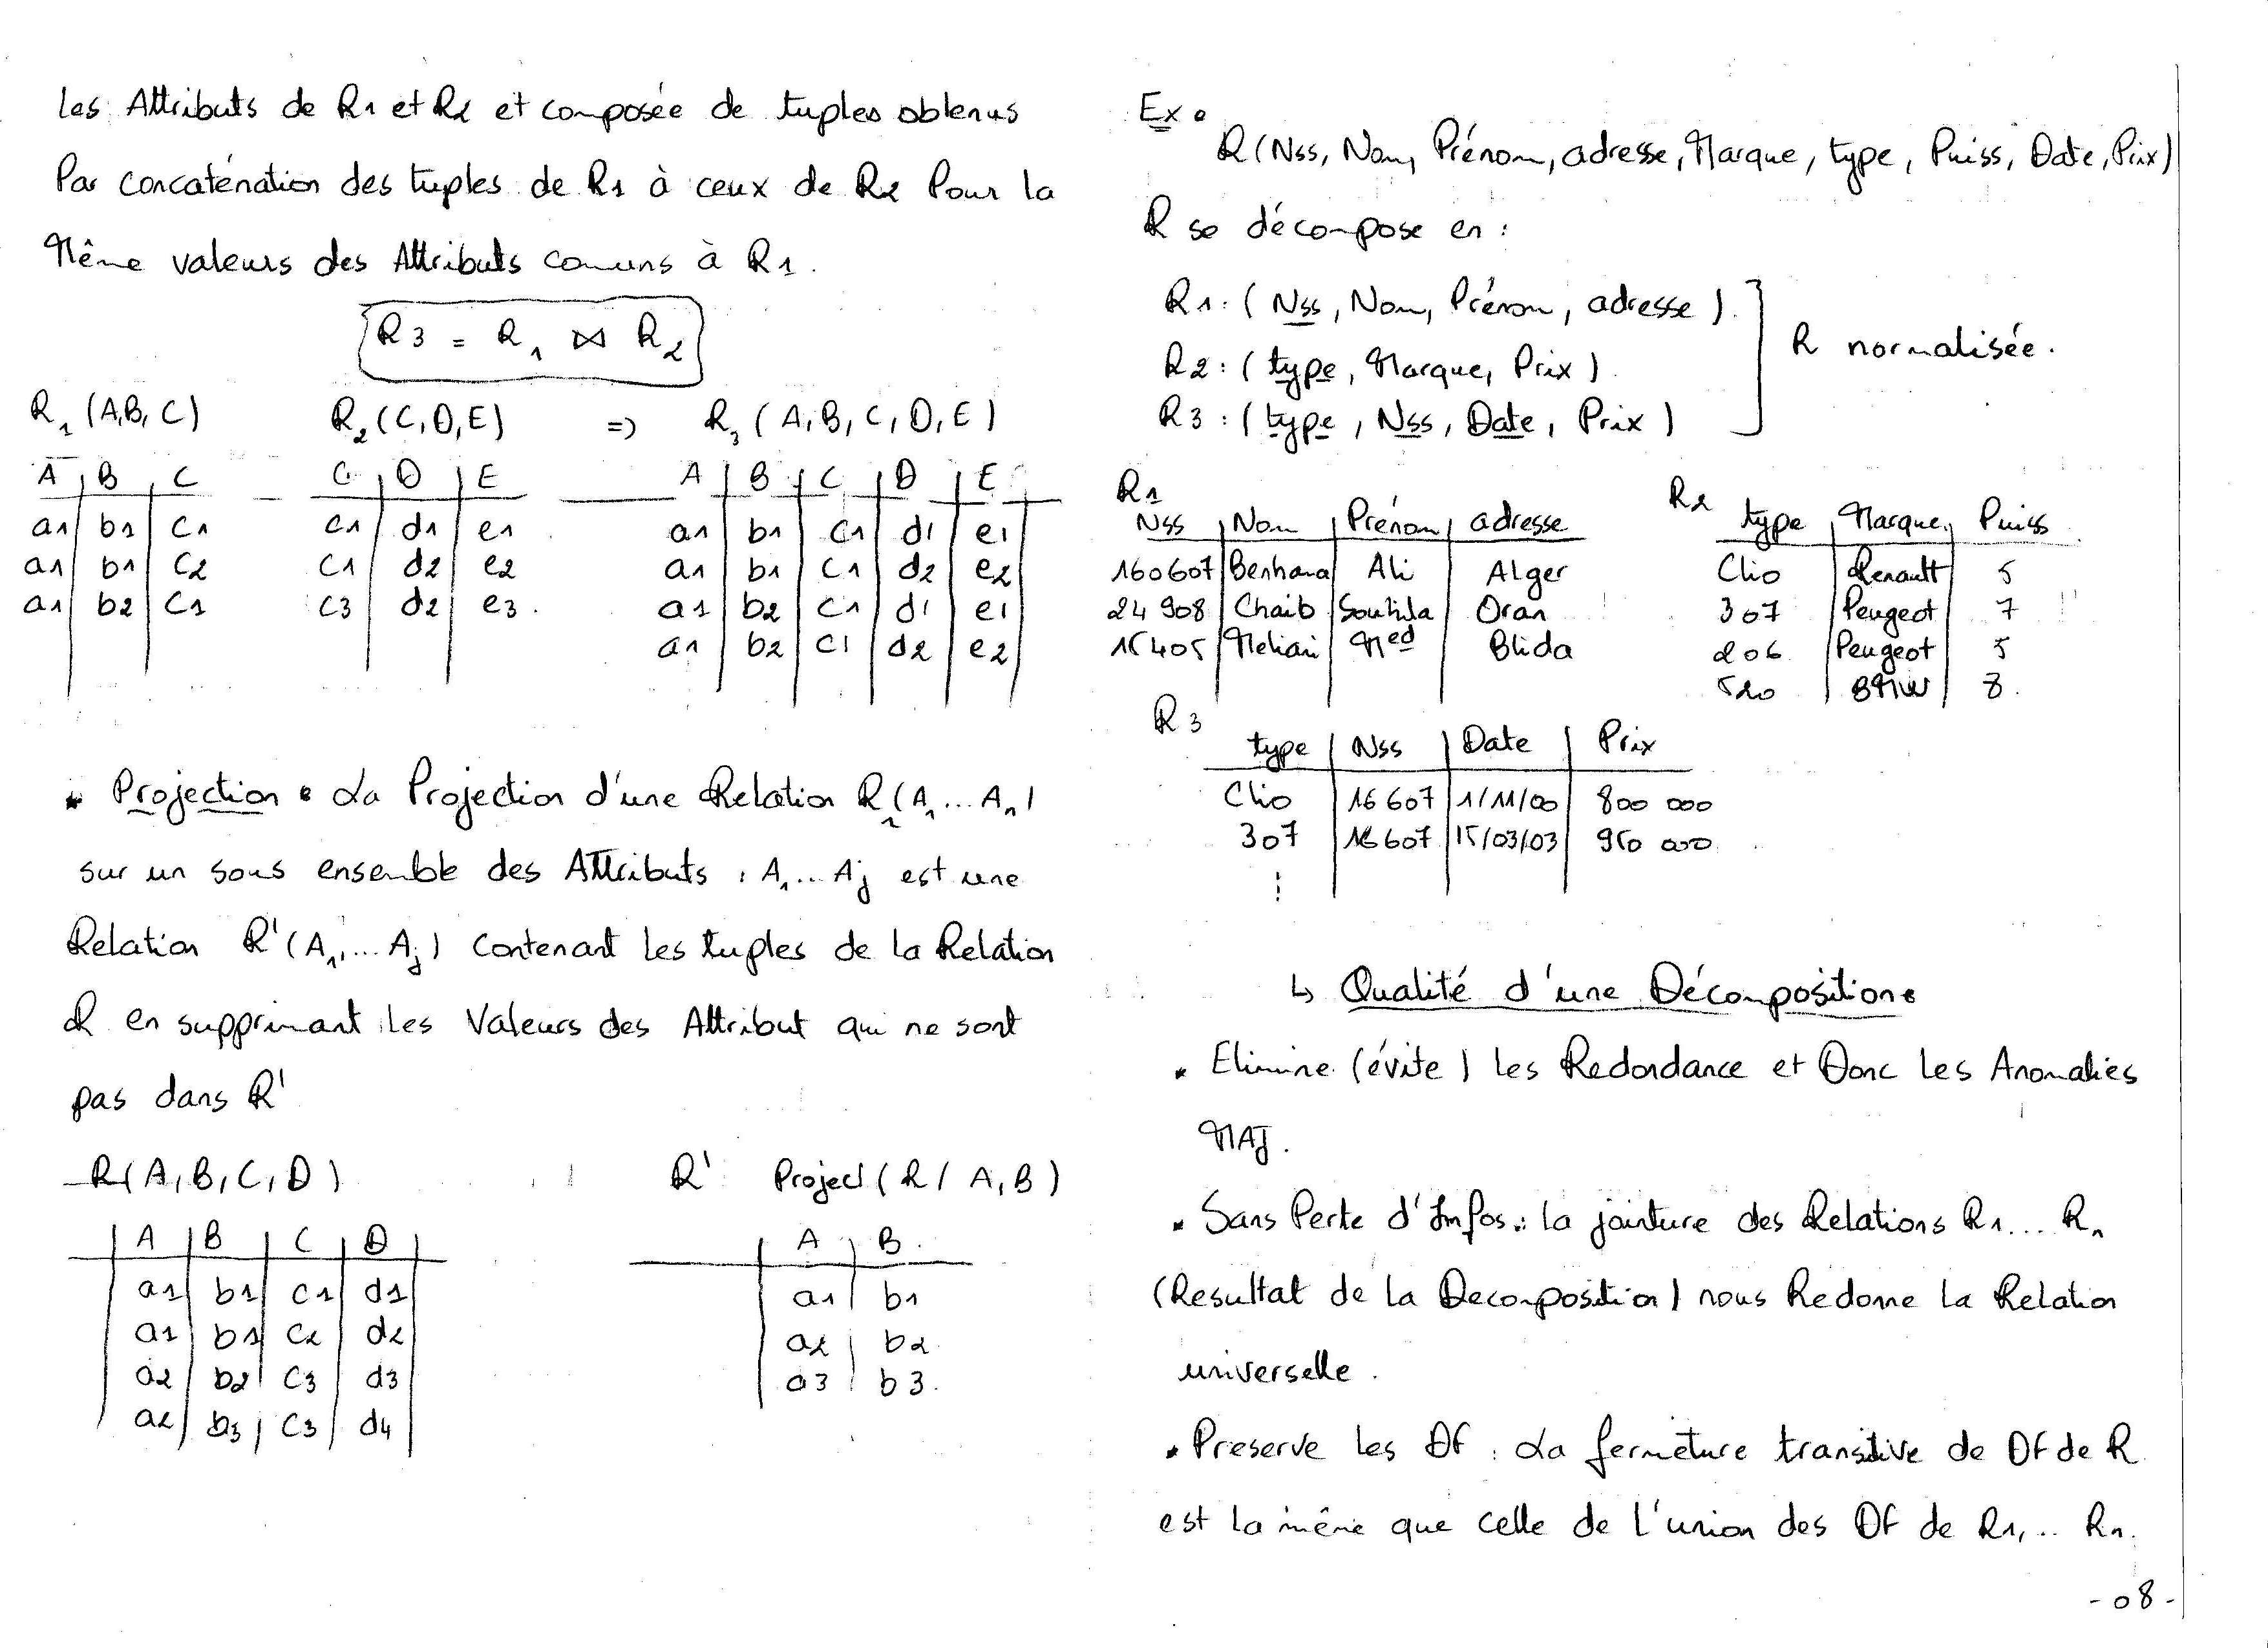 les Attributs de R1 et R2 et composée de tuples obtenus
Par concaténation des tuples de R1 à ceux de R2 Pour la
Même valeurs des Attributs comuns à R1.
R3 = R1 ⋈ R2
R1 (A,B,C) R2 (C,D,E) => R3 (A,B,C,D,E)
A B C C D E A B C D E
a1 b1 c1 c1 d1 e1 a1 b1 c1 d1 e1
a1 b1 c2 c1 d2 e2 a1 b1 c1 d2 e2
a1 b2 c1 c3 d2 e3. a1 b2 c1 d1 e1
a1 b2 c1 d2 e2
* Projection : La Projection d'une Relation R1(A1...An)
sur un sous ensemble des Attributs : A1...Aj est une
Relation R'(A1,...Aj) contenant les tuples de la Relation
R en supprimant les Valeurs des Attribut qui ne sont
pas dans R'
R(A,B,C,D) R' Project (R / A,B)
A B C D A B
a1 b1 c1 d1 a1 b1
a1 b1 c2 d2 a2 b2
a2 b2 c3 d3 a3 b3.
a2 b3 c3 d4
Ex :
R(Nss, Nom, Prénom, adresse, Marque, type, Puiss, Date, Prix)
R se décompose en :
R1 : (Nss, Nom, Prénom, adresse).
R2 : (type, Marque, Prix)
R normalisée.
R3 : (type, Nss, Date, Prix)
R1 R2
Nss Nom Prénom adresse type Marque Puiss
160607 Benhana Ali Alger Clio Renault 5
24 908 Chaib Souhila Oran 307 Peugeot 7
15405 Meliani Med Blida 206 Peugeot 5
520 BMW 8.
R3
type Nss Date Prix
Clio 16 607 1/11/00 800 000
307 16 607 15/03/03 950 000
⋮
↳ Qualité d'une Décomposition :
* Elimine (évite) les Redondance et Donc les Anomaliés
MAJ.
* Sans Perte d'Infos : la jointure des Relations R1.... Rn
(Resultat de la Decomposition) nous Redonne la Relation
universelle.
* Preserve les DF : La fermeture transitive de DF de R
est la même que celle de l'union des DF de R1,.. Rn.
- 08 -